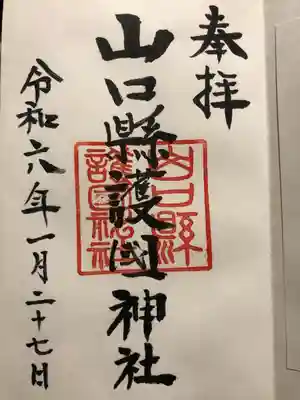 奉拝
山口縣護國神社
山口縣護國神社
令和六年一月二十七日